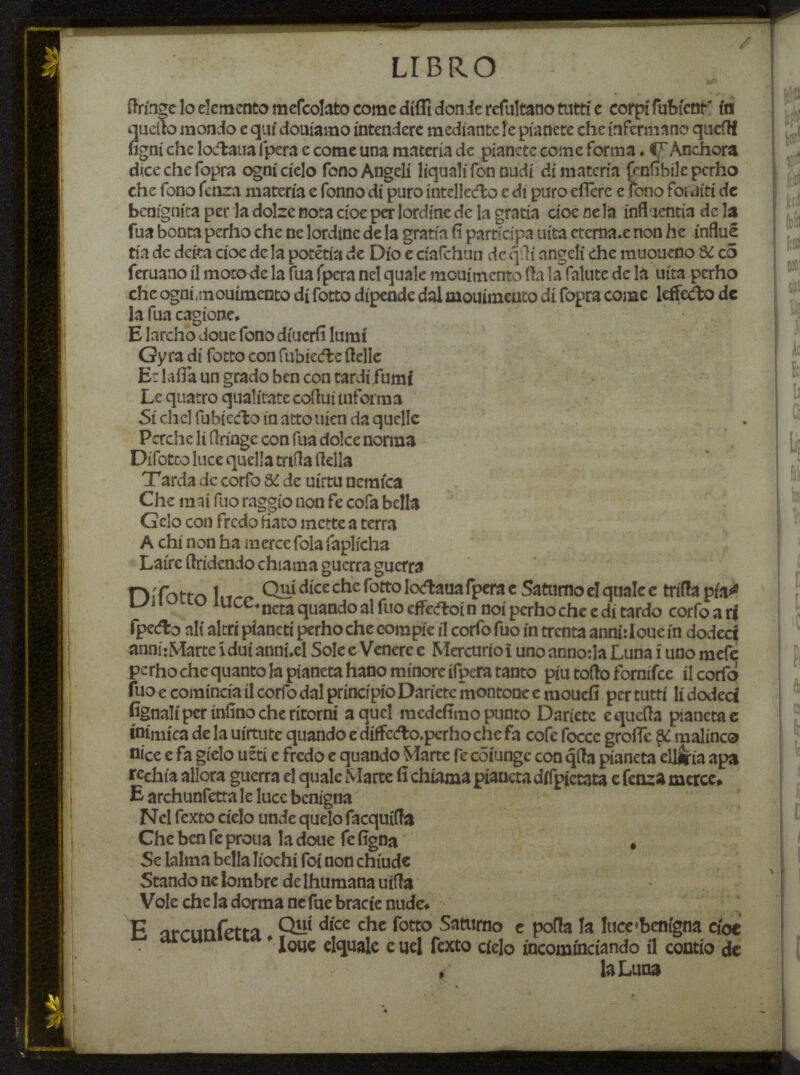 LIBRO
ſtringe lo elemento meſcolato come diſſi donde reſultano tutti e corpi ſubient' in
queſto mondo e qui douiamo intendere mediante le pianete che infermano queſti
ſigni che loctaua ſpera e come una materia de pianete come forma. ☾ Anchora
dice che ſopra ogni cielo ſono Angeli liquali ſon nudi di materia ſenſibile perho
che ſono ſenza materia e ſonno di puro intellecto e di puro eſſere e ſono forniti de
benignita per la dolze nota cioe per lordine de la gratia cioe ne la influentia de la
ſua bonta perho che ne lordine de la gratia ſi participa uita eterna.e non he influē
tia de deita cioe de la potētia de Dio e ciaſchun de q̄ſti angeli che muoueno & cō
ſeruano il moto de la ſua ſpera nel quale mouimento ſta la ſalute de la uita perho
che ogni mouimento di ſotto dipende dal mouimento di ſopra come leffecto de
la ſua cagione.
E larcho doue ſono diuerſi lumi
Gyra di ſotto con ſubiecte ſtelle
Et laſſa un grado ben con tardi fumi
Le quatro qualitate coſtui informa
Si chel ſubiecto in atto uien da quelle
Perche li ſtringe con ſua dolce norma
Diſotto luce quella triſta ſtella
Tarda de corſo & de uirtu nemica
Che mai ſuo raggio non fe coſa bella
Gelo con fredo fiato mette a terra
A chi non ha merce ſola ſaplicha
Laire ſtridendo chiama guerra guerra
Diſotto luce. Qui dice che ſotto loctaua ſpera e Saturno el quale e triſta pia
neta quando al ſuo effectoin noi perho che e di tardo corſo a ri
ſpecto ali altri pianeti perho che compie il corſo ſuo in trenta anni:Ioue in dodeci
anni:Marte i dui anni.el Sole e Venere e Mercurio i uno anno:la Luna i uno meſe
perho che quanto la pianeta hano minore iſpera tanto piu toſto forniſce il corſo
ſuo e comincia il corſo dal principio Dariete montone e moueſi per tutti li dodeci
ſignali per inſino che ritorni a quel medeſimo punto Dariete e queſta pianeta e
inimica de la uirtute quando e diffecto.perho che fa coſe ſocce groſſe & malinco
nice e fa gielo uēti e fredo e quando Marte ſe cōiunge con q̄ſta pianeta ellaria apa
rechia allora guerra el quale Marte ſi chiama pianeta diſpietata e ſenza merce.
E archunfetta le luce benigna
Nel ſexto cielo unde quelo ſacquiſta
Che ben ſe proua la doue ſe ſigna
Se lalma bella liochi ſoi non chiude
Stando ne lombre de lhumana uiſta
Vole che la dorma ne ſue bracie nude.
E arcunfetta. Qui dice che ſotto Saturno e poſta la luce benigna cioe
Ioue elquale e uel ſexto cielo incominciando il contio de
la Luna